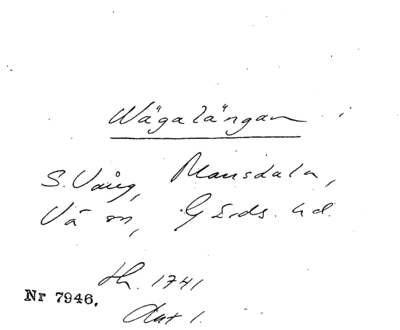 Wägalängan
S. Vång, Mansdala,
Vä sn, Gärds. hd.
Ak. 1741
Nr 7946. Akt 1.